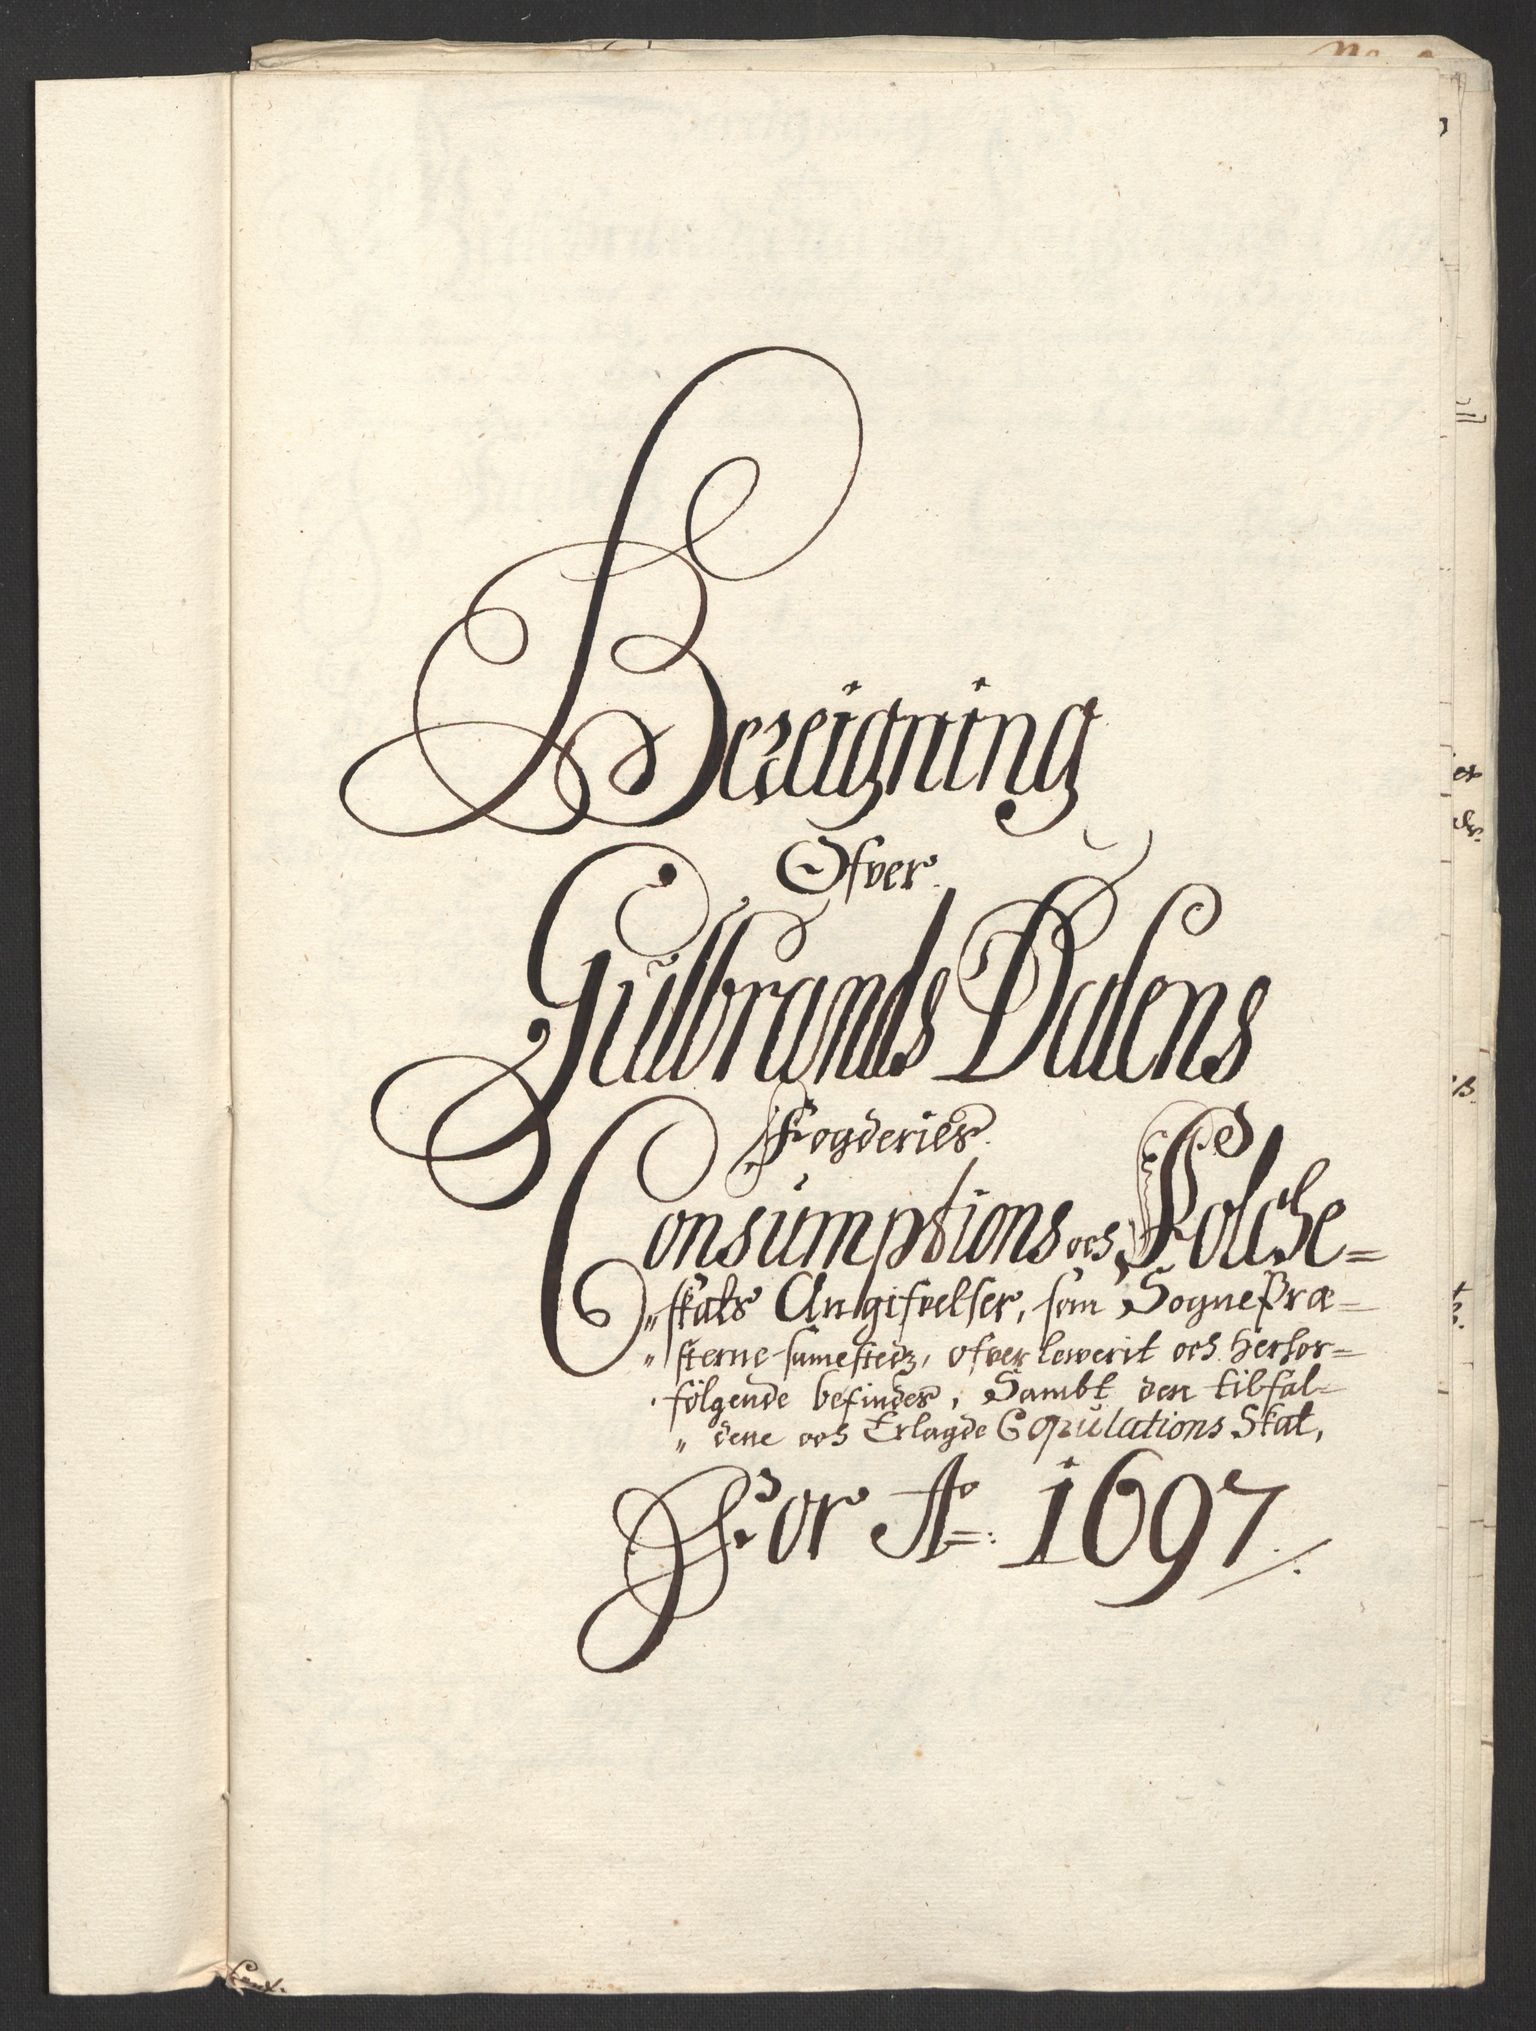 Bezeigning
Ofver
Gulbrands Dalens
Fogderies
Consumptions och Folche=
„ skats Angifvelser, som SognePræ=
„ sterne sammesteds, ofver lewerit och herhos=
fölgende befindes, Sambt den tilfal=
„ dene och Erlagde Copulations Skat,
For Ao: 1697